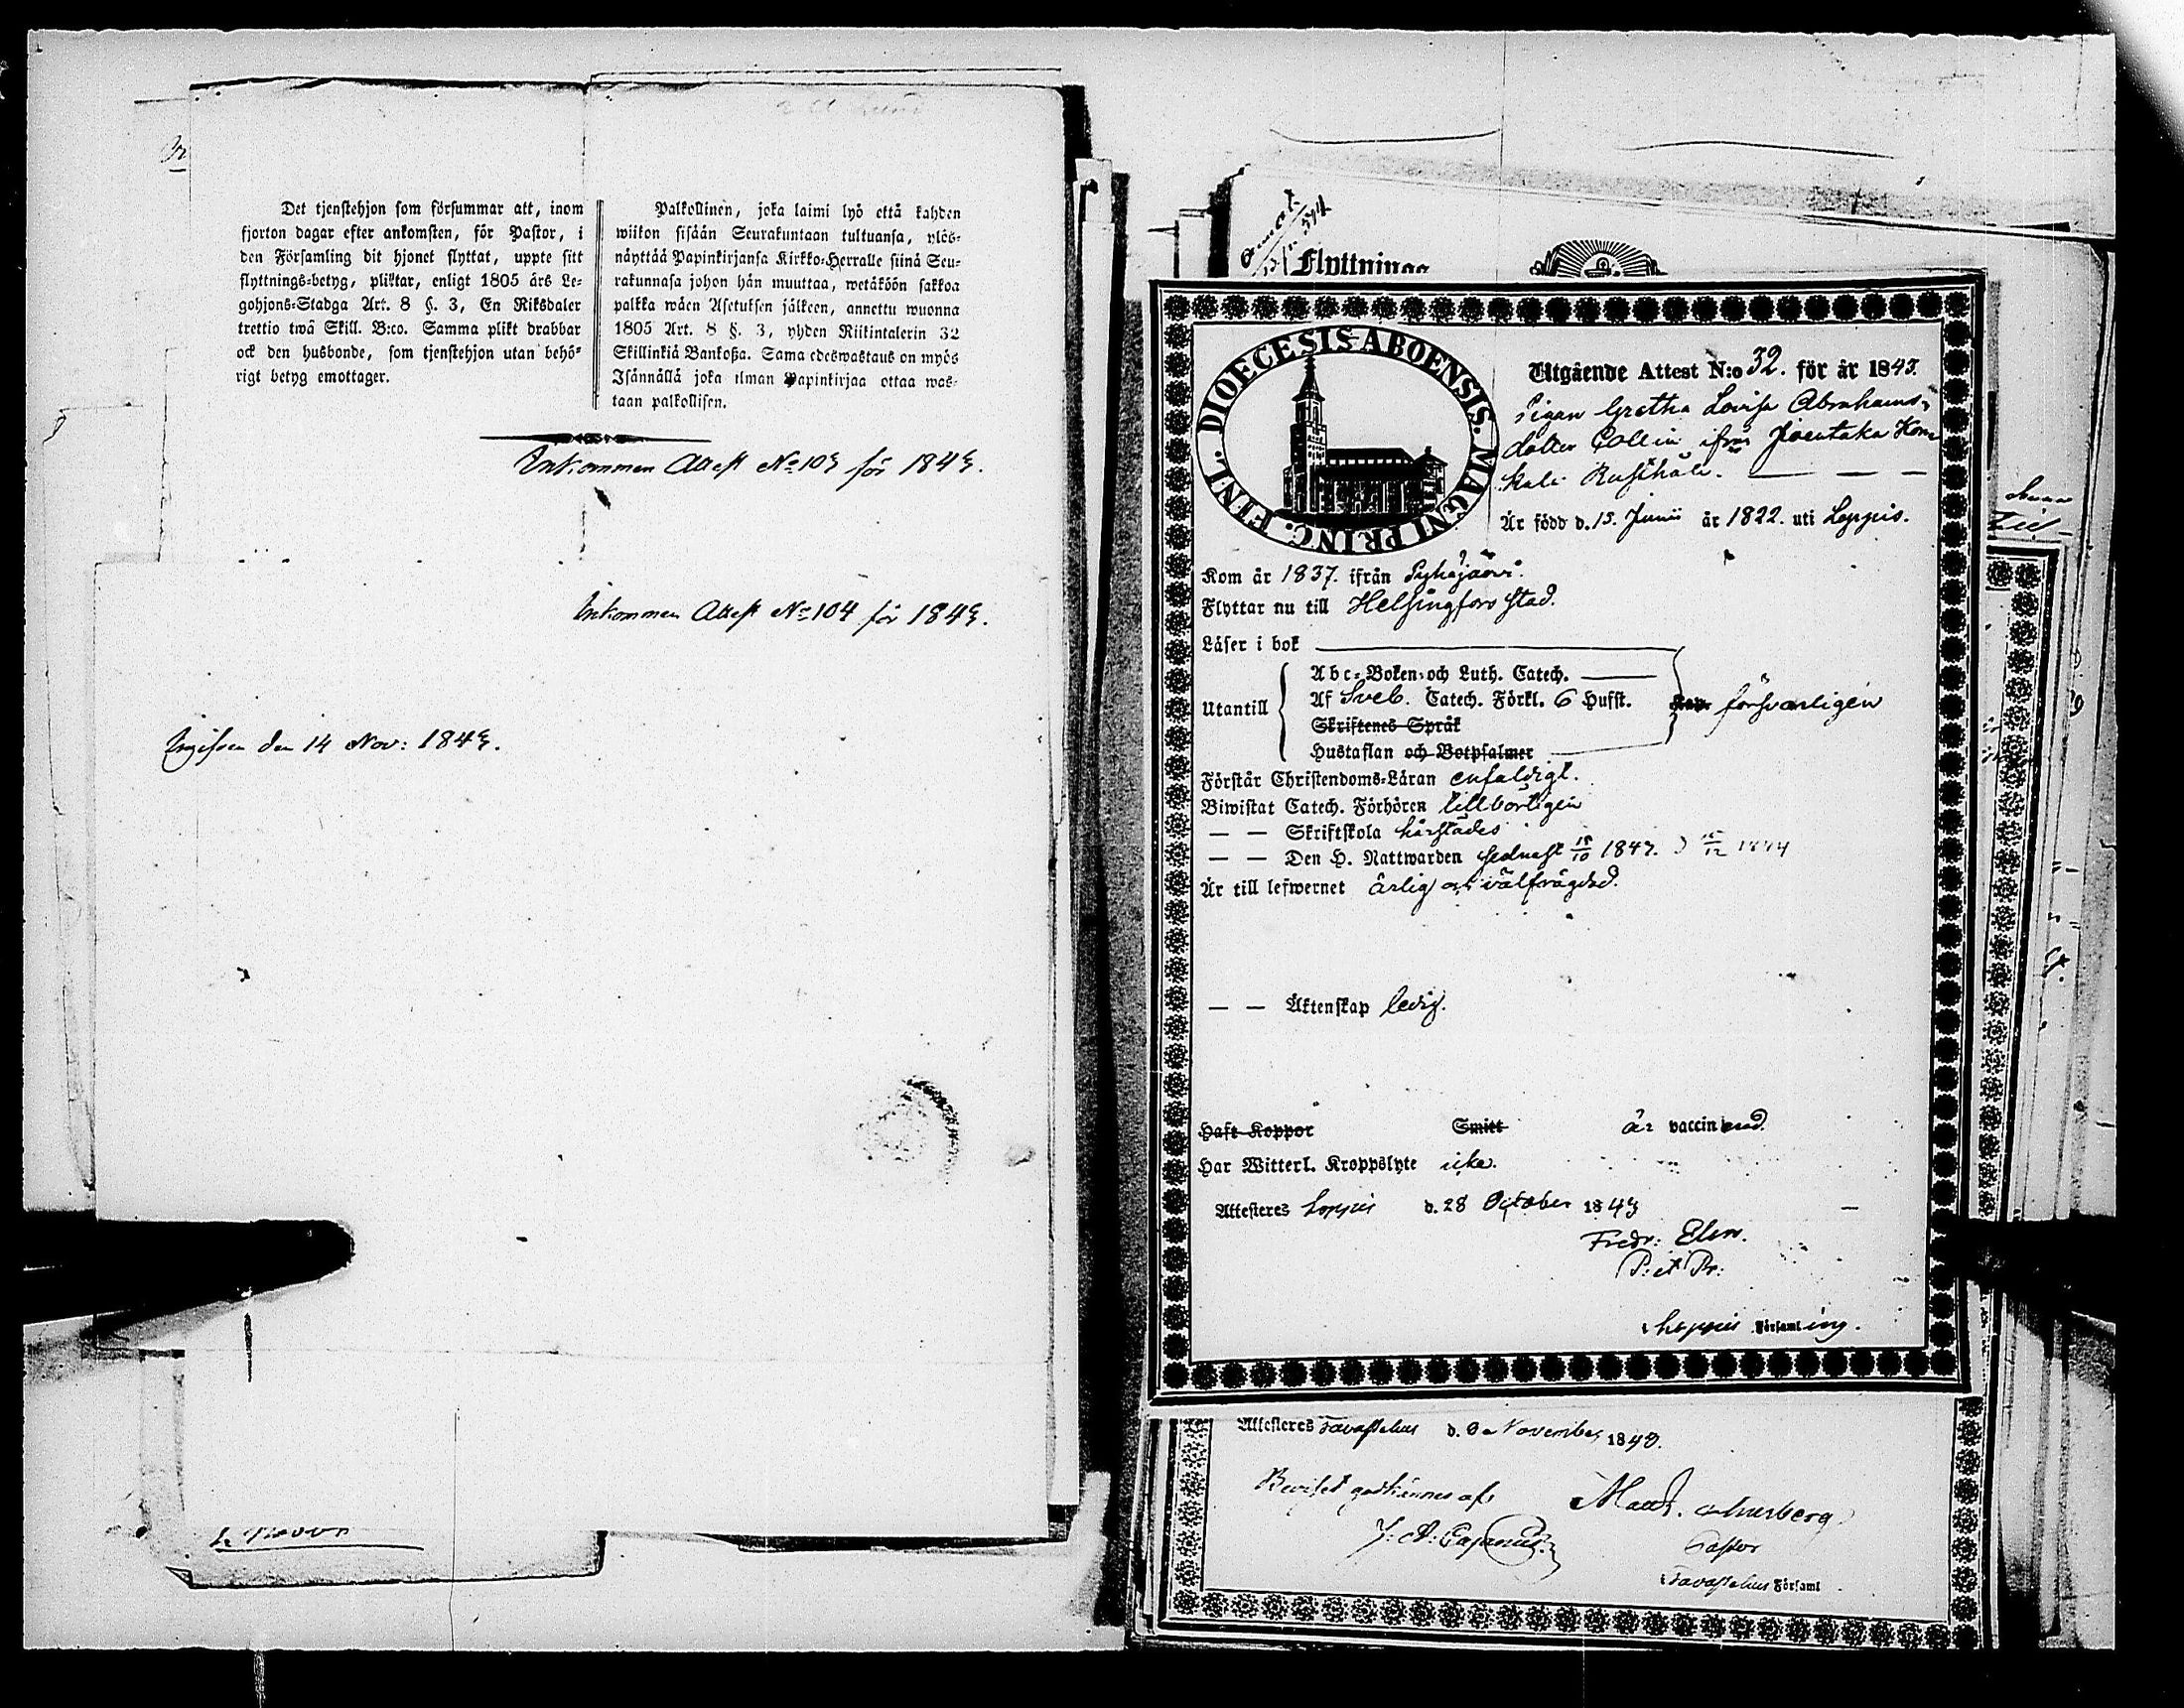 Det tjenstehjon som försummar att, inom
fjorton dagar efter ankomsten, för Pastor, i
den Församling dit hjonet flyttat, uppte sitt
flyttnings-betyg, pliktar, enligt 1805 års Le-
gohjons-Stadga Art. 8 §. 3, En Riksdaler
trettio twå Skill. B:co. Samma plikt drabbar
ock den husbonde, som tjenstehjon utan behö-
rigt betyg emottager.
Palkollinen, joka laimi lyö että kahden
wiikon sisään Seurakuntaan tultuansa, ylös-
näyttää Papinkirjansa Kirkko-Herralle siinä Seu-
rakunnasa johon hän muuttaa, wetäköön sakkoa
palkka wäen Asetuksen jälkeen, annettu wuonna
1805 Art. 8 §. 3, yhden Riikintalerin 32
Skillinkiä Bankoßa. Sama edeswastaus on myös
Isännällä joka ilman Papinkirjaa ottaa was-
taan palkollisen.
Inkommen Attest No 103 för 1843.
Inkommen Attest No 104 för 1843.
den 14 Nov: 1843.
Flyttnings
DIOECESIS ABOENSIS. MAGNI PRINC. FINL.
Utgående Attest N:o 32. för år 1843.
Pigan Gretha Lovisa Abrahams-
dotter Collin ifrån
Rusthåll.
Är född d. 15. Junii år 1822. uti Loppis.
Kom år 1837. ifrån Pyhäjärvi.
Flyttar nu till Helsingfors stad.
Läser i bok
Utantill
Abc-Boken och Luth. Catech.
Af Sveb. Catech. Förkl. 6 Hufst.
Skriftenes Språk
Hustaflan och Botpsalmer
försvarligen
Förstår Christendoms-Läran enfaldigt.
Biwistat Catech. Förhören tillbörligen
— — Skriftskola härstädes
— — Den H. Nattwarden sednast 15/10 1843.
Är till lefwernet ärlig och välfrägdad.
— — Äktenskap ledig.
Haft Koppor Smitt är vaccinerad.
Har Witterl. Kroppslyte icke.
Attesteres Loppis d. 28 October 1843
Fredr: Elers.
P: et Pr:
Loppis Församling.
Attesteres Tavastehus d. November 1843.
Beviset godkännes af
J: A: Cajanus.
Pastor
Tavastehus Församl